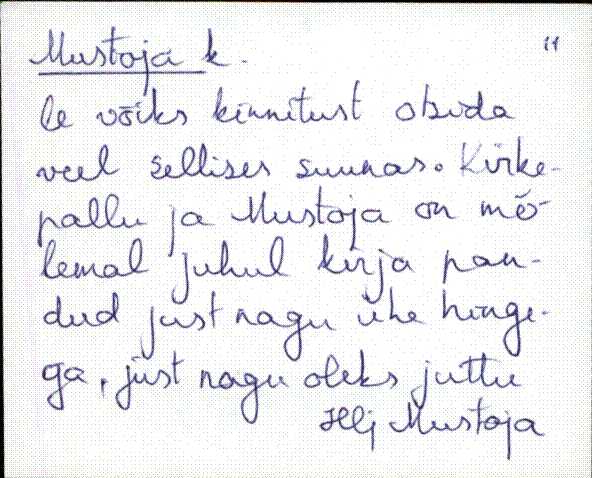 Mustoja k. 11
le võiks kinnitust otsida
veel sellises suunas. Kirke-
pallu ja Mustoja on mõ-
lemal juhul kirja pan-
dud just nagu ühe hinge-
ga, just nagu oleks juttu
Hlj Mustoja